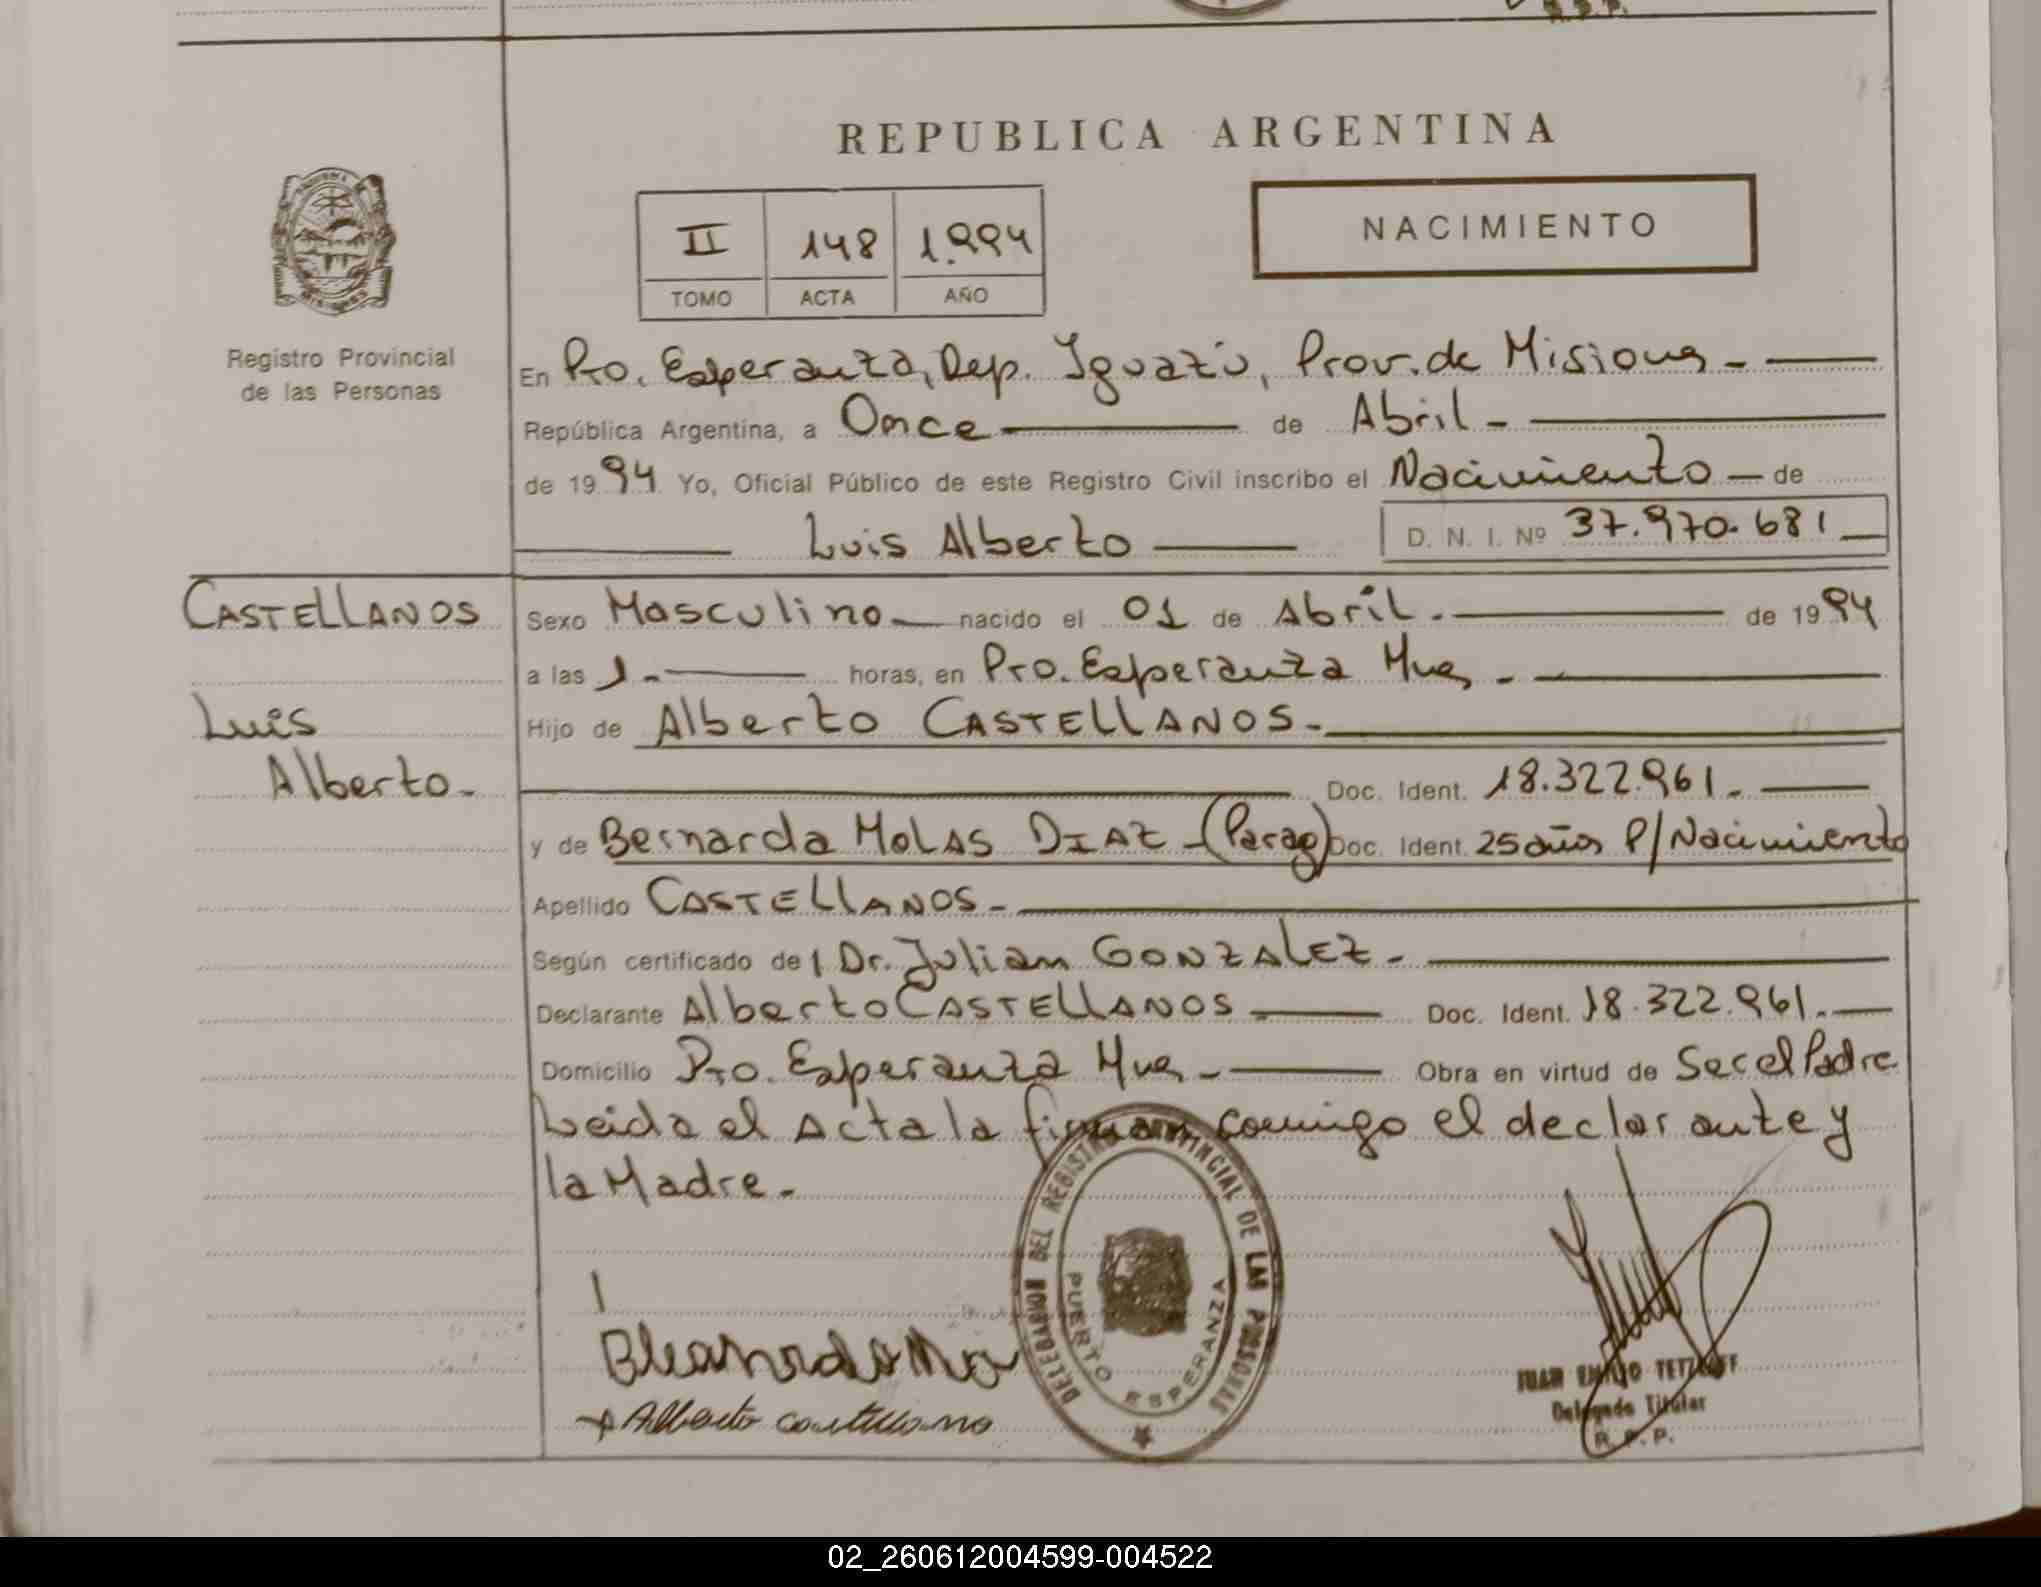 REPUBLICA ARGENTINA
NACIMIENTO
II 148 1.994
TOMO ACTA AÑO
Registro Provincial
de las Personas
En Pto. Esperanza, Dep. Iguazú, Prov. de Misiones -
República Argentina, a Once de Abril -
de 1994 Yo, Oficial Público de este Registro Civil inscribo el Nacimiento - de
Luis Alberto D. N. I. Nº 37.970.681
CASTELLANOS
Luis
Alberto.
Sexo Masculino nacido el 01 de Abril. de 1994
a las 1. horas, en Pto. Esperanza Mnes -
Hijo de Alberto CASTELLANOS.
Doc. Ident. 18.322.961.
y de Bernarda MOLAS DIAZ - (Parag) Doc. Ident. 25 años P/Nacimiento
Apellido CASTELLANOS -
Según certificado del Dr. Julian GONZALEZ -
Declarante Alberto CASTELLANOS Doc. Ident. 18.322.961.
Domicilio Pto. Esperanza Mnes - Obra en virtud de Ser el Padre
Leida el Acta la firman comigo el declarante y
la Madre -
DELEGACION DEL REGISTRO PROVINCIAL DE LAS PERSONAS
PUERTO ESPERANZA
Alberto
JUAN EMILIO TETZLAFF
Delegado Titular
R. P. P.
02_260612004599-004522